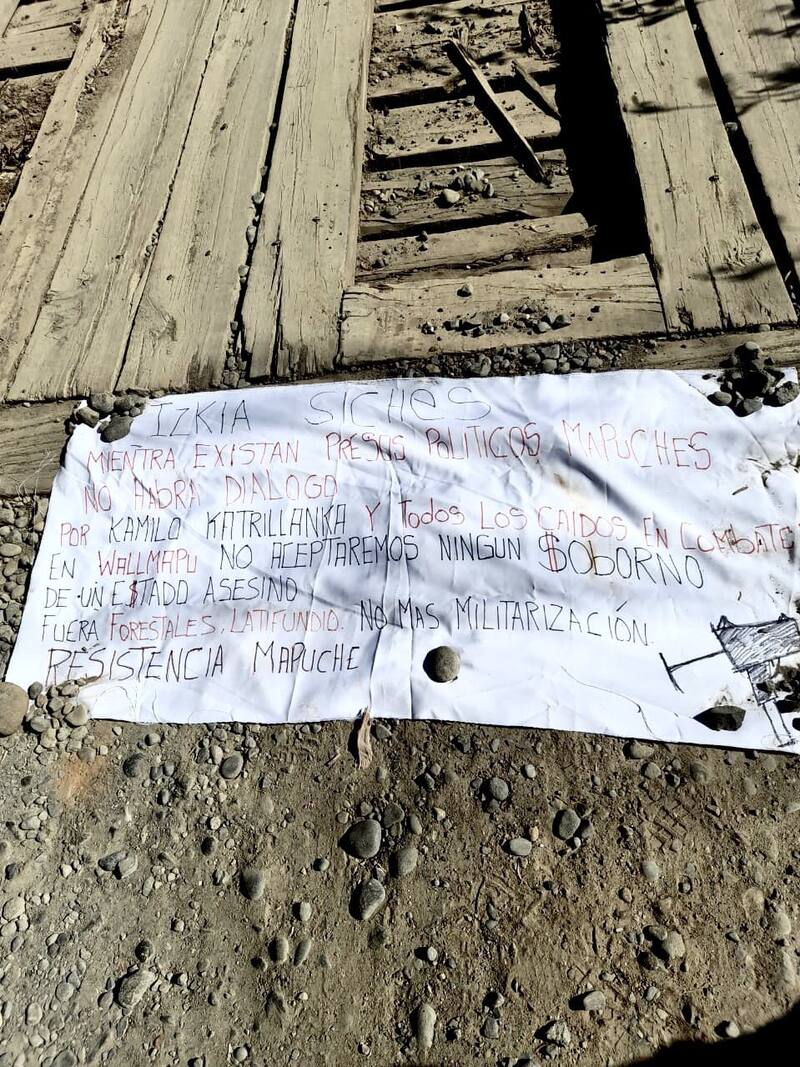 IZKIA SICHeS
MIENTRA EXISTAN PRESOS POLITICOS MAPUCHES
NO HABRA DIALOGO
POR KAMILO KATRILLANKA Y TODOS LOS CAIDOS EN COMBATE
EN WALLMAPU NO ACEPTAREMOS NINGUN $OBORNO
DE UN E$TADO ASESINO
FUERA FORESTALES, LATIFUNDIO. NO MAS MILITARIZACIÓN.
RESISTENCIA MAPUCHE